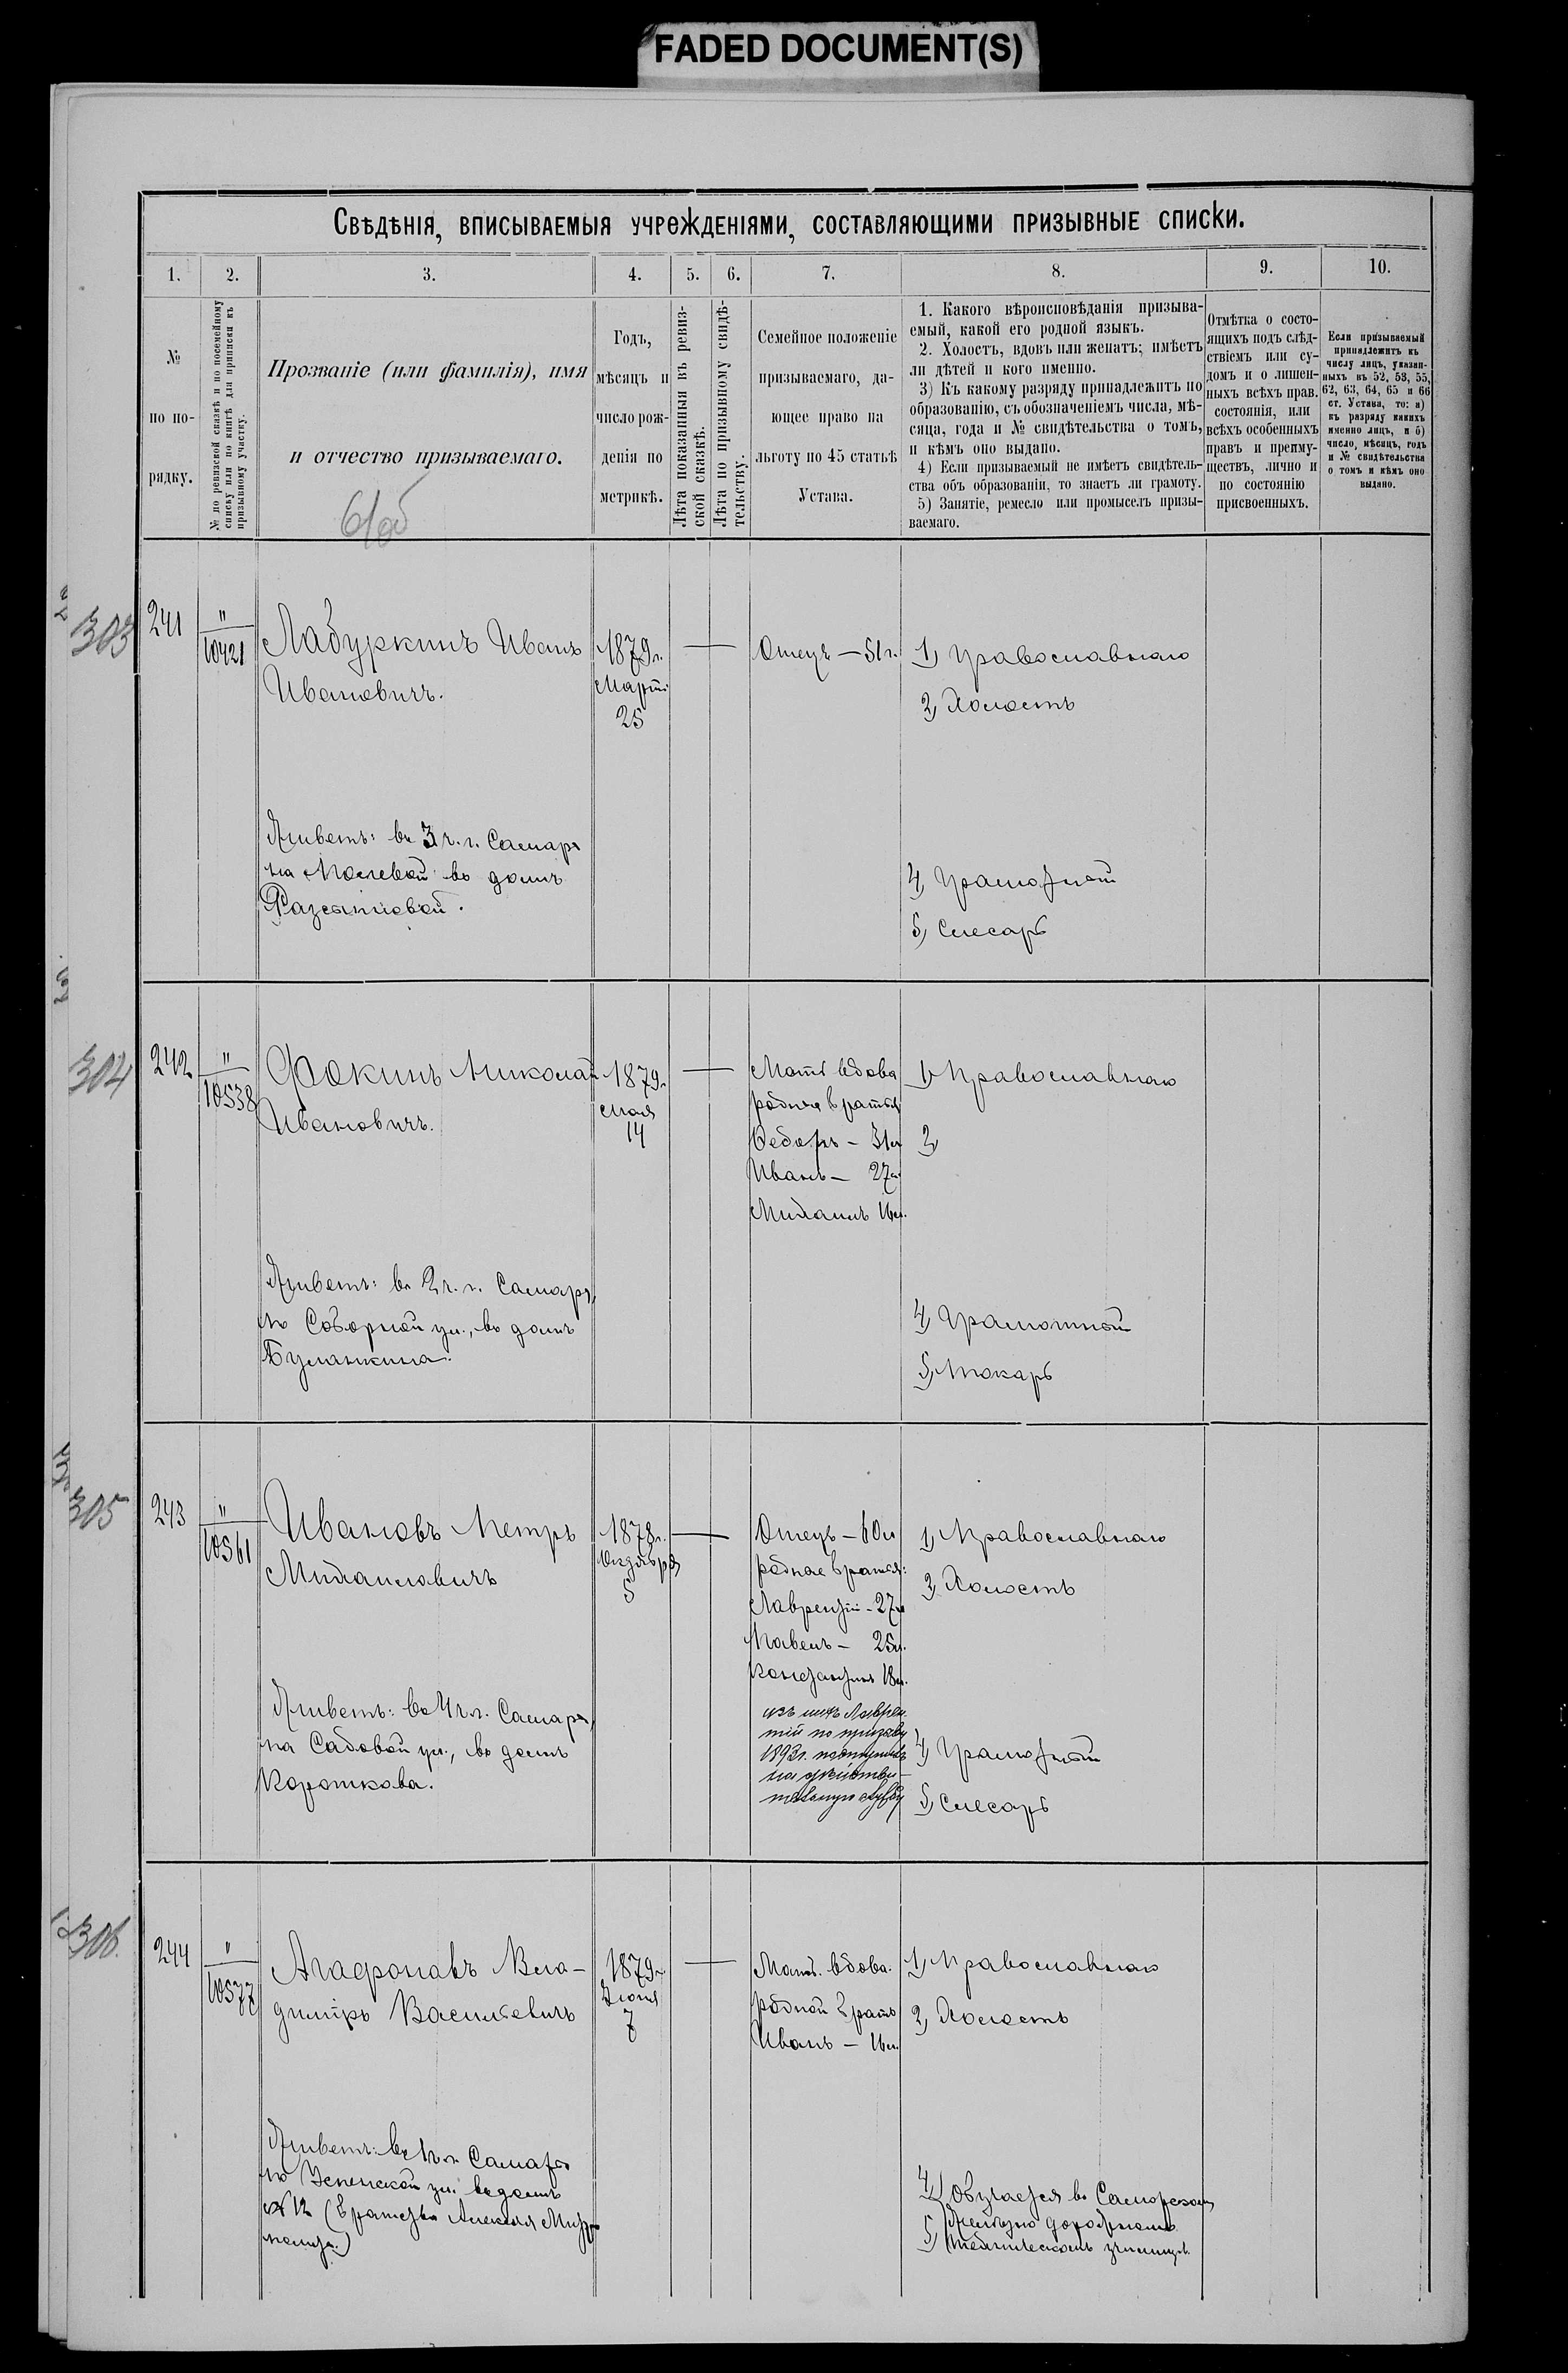 FADED DOCUMENT(S)
Свѣдѣнія, вписываемыя учрежденіями, составляющими призывные списки.
1. 2. 3. 4. 5. 6. 7. 8. 9. 10.
№ по порядку.
№ по ревизской сказкѣ и по посемейному
списку или по книгѣ для приписки къ
призывному участку.
Прозваніе (или фамилія), имя
и отчество призываемаго.
Годъ,
мѣсяцъ и
число рож-
денія по
метрикѣ.
Лѣта показанныя въ ревиз-
ской сказкѣ.
Лѣта по призывному свидѣ-
тельству.
Семейное положеніе
призываемаго, да-
ющее право на
льготу по 45 статьѣ
Устава.
1. Какого вѣроисповѣданія призыва-
емый, какой его родной языкъ.
2. Холостъ, вдовъ или женатъ; имѣетъ
ли дѣтей и кого именно.
3) Къ какому разряду принадлежитъ по
образованію, съ обозначеніемъ числа, мѣ-
сяца, года и № свидѣтельства о томъ,
и кѣмъ оно выдано.
4) Если призываемый не имѣетъ свидѣтель-
ства объ образованіи, то знаетъ ли грамоту.
5) Занятіе, ремесло или промыселъ призы-
ваемаго.
Отмѣтка о состо-
ящихъ подъ слѣд-
ствіемъ или су-
домъ и о лишен-
ныхъ всѣхъ прав.
состоянія, или
всѣхъ особенныхъ
правъ и преиму-
ществъ, лично и
по состоянію
присвоенныхъ.
Если призываемый
принадлежитъ къ
числу лицъ, указан-
ныхъ въ 52, 53, 55,
62, 63, 64, 65 и 66
ст. Устава, то: а)
къ разряду какихъ
именно лицъ, и б)
число, мѣсяцъ, годъ
и № свидѣтельства
о томъ и кѣмъ оно
выдано.
61об
303
241
"
10421
Лабуркинъ Иванъ
Ивановичъ.
1879г.
Март.
25
Отецъ — 51 г.
1) Православнаго
2) Холостъ
Живетъ: въ 3 ч. г. Самары
на Полевой въ домѣ
4) Грамотный
5) Слесарь
304
242
"
10538
Фокинъ Николай
Ивановичъ.
1879г.
Мая
14
Мать вдова
родные братья
Ѳедоръ — 31 л.
Иванъ — 27 л.
Михаилъ 16 л.
1) Православнаго
2)
Живетъ: въ 2 ч. г. Самары,
по Соборной ул., въ домѣ
Буланкина.
4) Грамотный
5) Токарь
305
243
"
10561
Ивановъ Петръ
Михаиловичъ
1878г.
Октября
5
Отецъ — 60 л.
родные братья:
Лаврентій — 27 л.
Павелъ — 25 л.
Константинъ 18 л.
изъ нихъ Лаврен-
тій по призыву
1893г. поступилъ
на дѣйстви-
тельную службу
1) Православнаго
2) Холостъ
Живетъ: въ 4 ч. г. Самары,
на Садовой ул., въ домѣ
Короткова.
4) Грамотный
5) Слесарь
306.
244
"
10577
Агафоновъ Вла-
димиръ Васильевичъ
1879г.
Іюня
7
Мать вдова.
родной братъ
Иванъ — 16 л.
1) Православнаго
2) Холостъ
Живетъ: въ 1 ч. г. Самары
по Успенской ул. въ домѣ
№ 12 (Братство Алексія Митро-
полита.)
4) Обучается въ Самарскомъ
5) Желѣзно дорожномъ
техническомъ училищѣ.